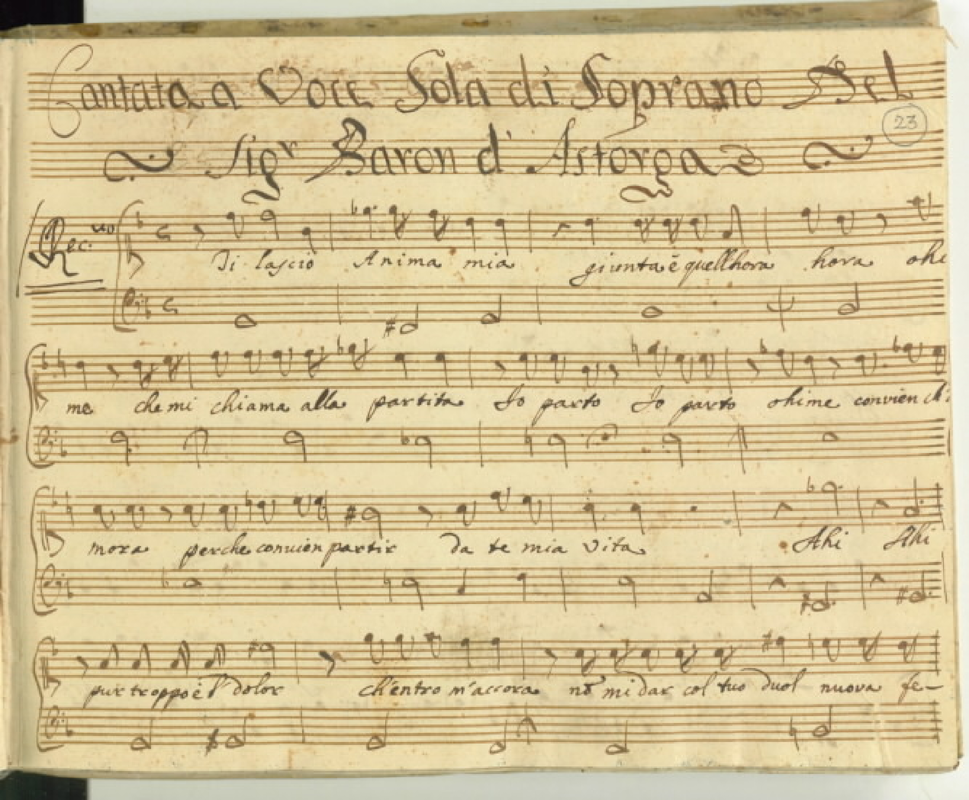 Cantata a Voce Sola di Soprano Del
23
Sigr Baron d'Astorga
Rec.vo
Ti lascio Anima mia giunta è quell'hora hora ohi
me che mi chiama alla partita Io parto Io parto ohime convien ch'i
mora perche convien partir da te mia vita Ahi Ahi
pur troppo è l' dolor ch'entro m'accora nõ mi dar col tuo duol nuova fe-